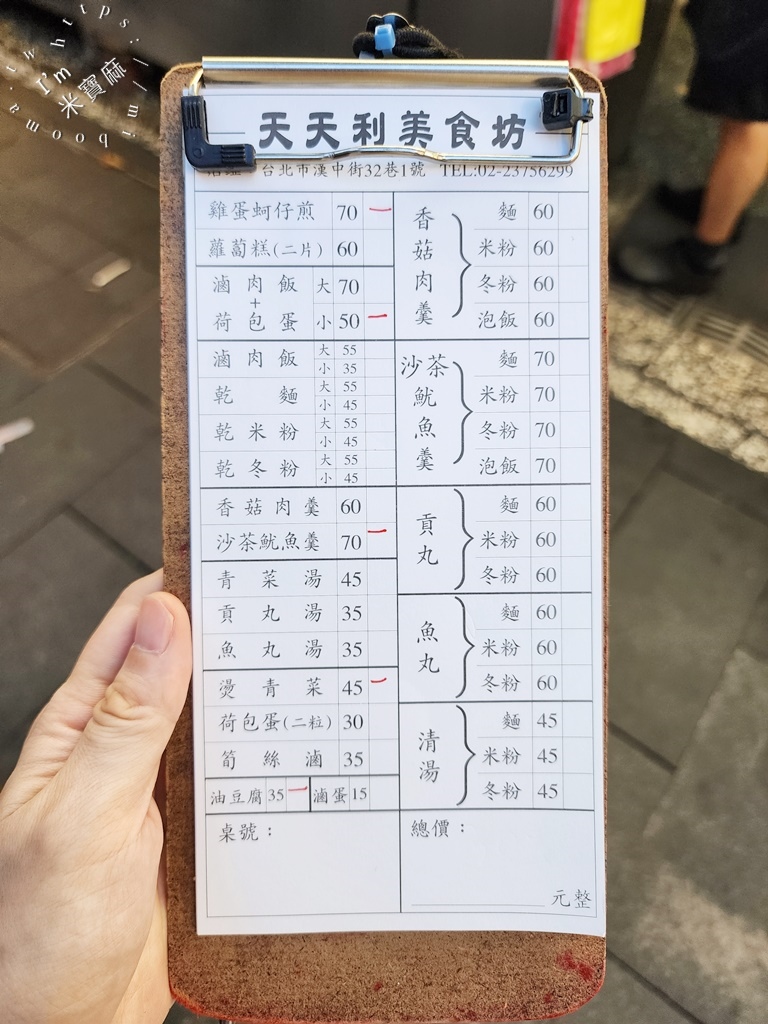 https://miboma.tw
I'm
米寶麻
天天利美食坊
台北市漢中街32巷1號 TEL:02-23756299
雞蛋蚵仔煎 70 一
蘿蔔糕(二片) 60
滷肉飯 大 70
+
荷包蛋 小 50 一
滷肉飯 大 55
小 35
乾麵 大 55
小 45
乾米粉 大 55
小 45
乾冬粉 大 55
小 45
香菇肉羹 60
沙茶魷魚羹 70 一
青菜湯 45
貢丸湯 35
魚丸湯 35
燙青菜 45 一
荷包蛋(二粒) 30
筍絲滷 35
油豆腐 35 一 滷蛋 15
桌號：
香菇肉羹
麵 60
米粉 60
冬粉 60
泡飯 60
沙茶魷魚羹
麵 70
米粉 70
冬粉 70
泡飯 70
貢丸
麵 60
米粉 60
冬粉 60
魚丸
麵 60
米粉 60
冬粉 60
清湯
麵 45
米粉 45
冬粉 45
總價：
元整